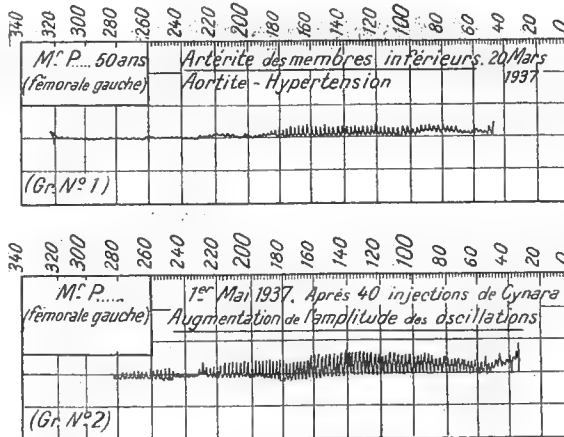 340 320 300 280 260 240 220 200 180 160 140 120 100 80 60 40 20 0
Mr P.... 50 ans
(fémorale gauche)
Artérite des membres inférieurs. 20 Mars
1937
Aortite - Hypertension
(Gr. No 1)
340 320 300 280 260 240 220 200 180 160 140 120 100 80 60 40 20 0
Mr P.....
(fémorale gauche)
1er Mai 1937. Après 40 injections de Cynara
Augmentation de l'amplitude des oscillations
(Gr. No 2)